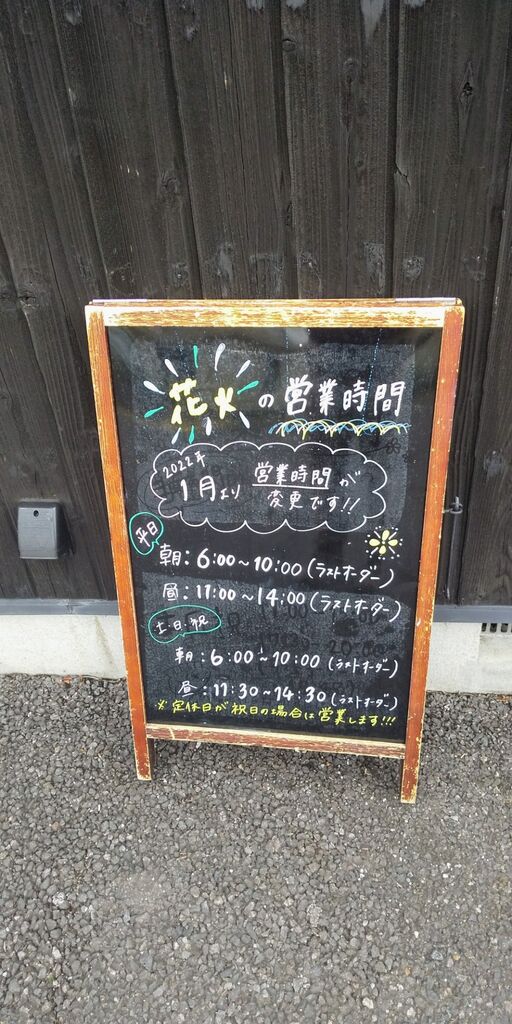 花火の営業時間
2022年
1月より 営業時間が
変更です!!
平日
朝:6:00~10:00(ラストオーダー)
昼:11:00~14:00(ラストオーダー)
土・日・祝
朝:6:00~10:00(ラストオーダー)
昼:11:30~14:30(ラストオーダー)
※定休日が祝日の場合は営業します!!!